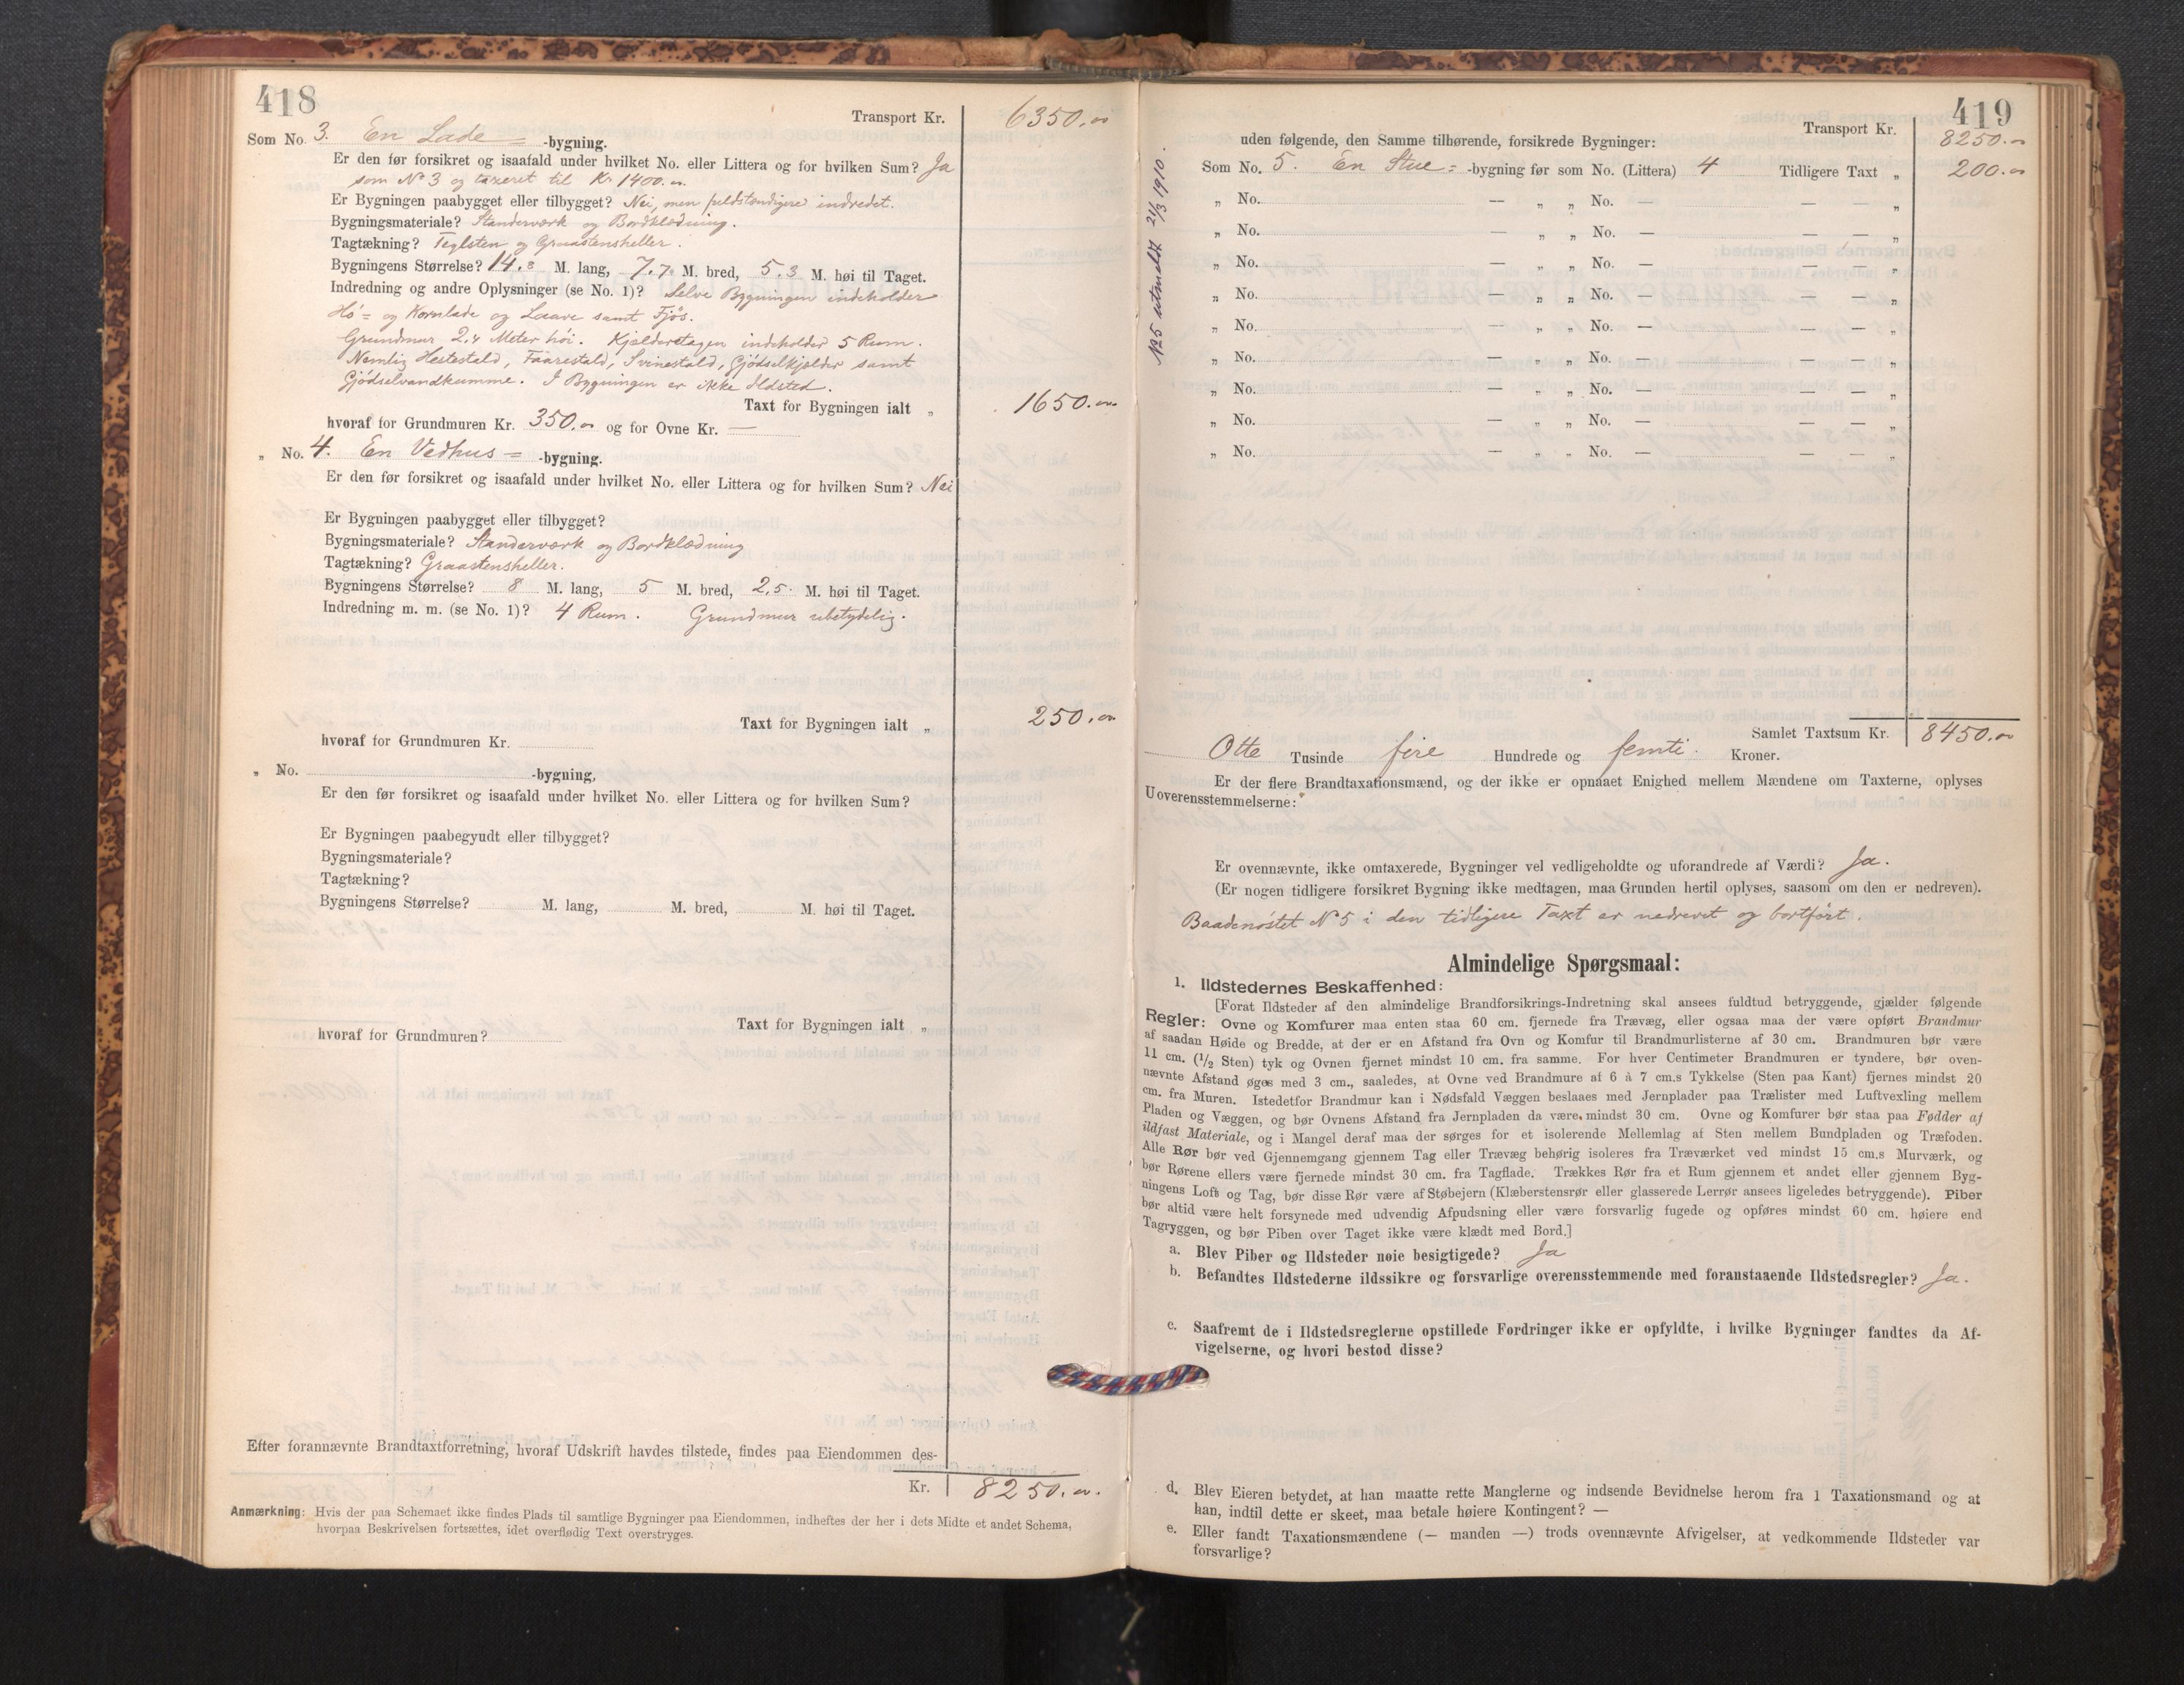 418
Transport Kr. 6350.00
Som No. 3. En Lade = -bygning.
Er den før forsikret og isaafald under hvilket No. eller Littera og for hvilken Sum? Ja
som No 3 og taxeret til Kr 1400.00
Er Bygningen paabygget eller tilbygget? Nei, men fuldstændigere indredet.
Bygningsmateriale? Standerværk og Bordklædning.
Tagtækning? Teglsten og Graastensheller.
Bygningens Størrelse? 14.8 M. lang, 7.7 M. bred, 5.3 M. høi til Taget.
Indredning og andre Oplysninger (se No. 1)? Selve Bygningen indeholder
Hö= og Kornlade og Laave samt Fjös.
Grundmur 2,4 Meter höi. Kjælderetagen indeholder 5 Rum.
Nemlig Hestestald, Faarestald, Svinestald, Gjödselkjælder samt
Gjödselvandkumme. I Bygningen er ikke Ildsted.
Taxt for Bygningen ialt „ 1650.00
hvoraf for Grundmuren Kr. 350.00 og for Ovne Kr. —
„ No. 4. En Vedhus = -bygning.
Er den før forsikret og isaafald under hvilket No. eller Littera og for hvilken Sum? Nei
Er Bygningen paabygget eller tilbygget?
Bygningsmateriale? Standerværk og Bordklædning
Tagtækning? Graastensheller.
Bygningens Størrelse? 8 M. lang, 5 M. bred, 2,5 M. høi til Taget.
Indredning m. m. (se No. 1)? 4 Rum. Grundmur ubetydelig.
Taxt for Bygningen ialt „ 250.00
hvoraf for Grundmuren Kr.
„ No. -bygning,
Er den før forsikret og isaafald under hvilket No. eller Littera og for hvilken Sum?
Er Bygningen paabegyudt eller tilbygget?
Bygningsmateriale?
Tagtækning?
Bygningens Størrelse? M. lang, M. bred, M. høi til Taget.
Taxt for Bygningen ialt „
hvoraf for Grundmuren?
Efter forannævnte Brandtaxtforretning, hvoraf Udskrift havdes tilstede, findes paa Eiendommen des-
Kr. 8250.00
Anmærkning: Hvis der paa Schemaet ikke findes Plads til samtlige Bygninger paa Eiendommen, indheftes der her i dets Midte et andet Schema,
hvorpaa Beskrivelsen fortsættes, idet overflødig Text overstryges.
419
Transport Kr. 8250.00
uden følgende, den Samme tilhørende, forsikrede Bygninger:
Som No. 5. En Stue = -bygning før som No. (Littera) 4 Tidligere Taxt „ 200.00
„ No. — „ „ No. — — — „
„ No. — „ „ No. — — — „
„ No. — „ „ No. — — — „
„ No. — „ „ No. — — — „
„ No. — „ „ No. — — — „
„ No. — „ „ No. — — — „
„ No. — „ „ No. — — — „
„ No. — „ „ No. — — — „
„ No. — „ „ No. — — — „
No 5 utmeldt 21/3 1910.
Samlet Taxtsum Kr. 8450.00
Otte Tusinde fire Hundrede og femti. Kroner.
Er der flere Brandtaxationsmænd, og der ikke er opnaaet Enighed mellem Mændene om Taxterne, oplyses
Uoverensstemmelserne:
Er ovennævnte, ikke omtaxerede, Bygninger vel vedligeholdte og uforandrede af Værdi? Ja.
(Er nogen tidligere forsikret Bygning ikke medtagen, maa Grunden hertil oplyses, saasom om den er nedreven).
Baadenöstet No 5 i den tidligere Taxt er nedrevet og bortfört.
Almindelige Spørgsmaal:
1. Ildstedernes Beskaffenhed:
[Forat Ildsteder af den almindelige Brandforsikrings-Indretning skal ansees fuldtud betryggende, gjælder følgende
Regler: Ovne og Komfurer maa enten staa 60 cm. fjernede fra Trævæg, eller ogsaa maa der være opført Brandmur
af saadan Høide og Bredde, at der er en Afstand fra Ovn og Komfur til Brandmurlisterne af 30 cm. Brandmuren bør være
11 cm. (1/2 Sten) tyk og Ovnen fjernet mindst 10 cm. fra samme. For hver Centimeter Brandmuren er tyndere, bør oven-
nævnte Afstand øges med 3 cm., saaledes, at Ovne ved Brandmure af 6 à 7 cm.s Tykkelse (Sten paa Kant) fjernes mindst 20
cm. fra Muren. Istedetfor Brandmur kan i Nødsfald Væggen beslaaes med Jernplader paa Trælister med Luftvexling mellem
Pladen og Væggen, og bør Ovnens Afstand fra Jernpladen da være mindst 30 cm. Ovne og Komfurer bør staa paa Fødder af
ildfast Materiale, og i Mangel deraf maa der sørges for et isolerende Mellemlag af Sten mellem Bundpladen og Træfoden.
Alle Rør bør ved Gjennemgang gjennem Tag eller Trævæg behørig isoleres fra Træværket ved mindst 15 cm.s Murværk, og
bør Rørene ellers være fjernede mindst 30 cm. fra Tagflade. Trækkes Rør fra et Rum gjennem et andet eller gjennem Byg-
ningens Loft og Tag, bør disse Rør være af Støbejern (Klæberstensrør eller glasserede Lerrør ansees ligeledes betryggende). Piber
bør altid være helt forsynede med udvendig Afpudsning eller være forsvarlig fugede og opføres mindst 60 cm. høiere end
Tagryggen, og bør Piben over Taget ikke være klædt med Bord.]
a. Blev Piber og Ildsteder nøie besigtigede? Ja
b. Befandtes Ildstederne ildssikre og forsvarlige overensstemmende med foranstaaende Ildstedsregler? Ja.
c. Saafremt de i Ildstedsreglerne opstillede Fordringer ikke er opfyldte, i hvilke Bygninger fandtes da Af-
vigelserne, og hvori bestod disse?
d. Blev Eieren betydet, at han maatte rette Manglerne og indsende Bevidnelse herom fra 1 Taxationsmand og at
han, indtil dette er skeet, maa betale høiere Kontingent? —
e. Eller fandt Taxationsmændene (— manden —) trods ovennævnte Afvigelser, at vedkommende Ildsteder var
forsvarlige?